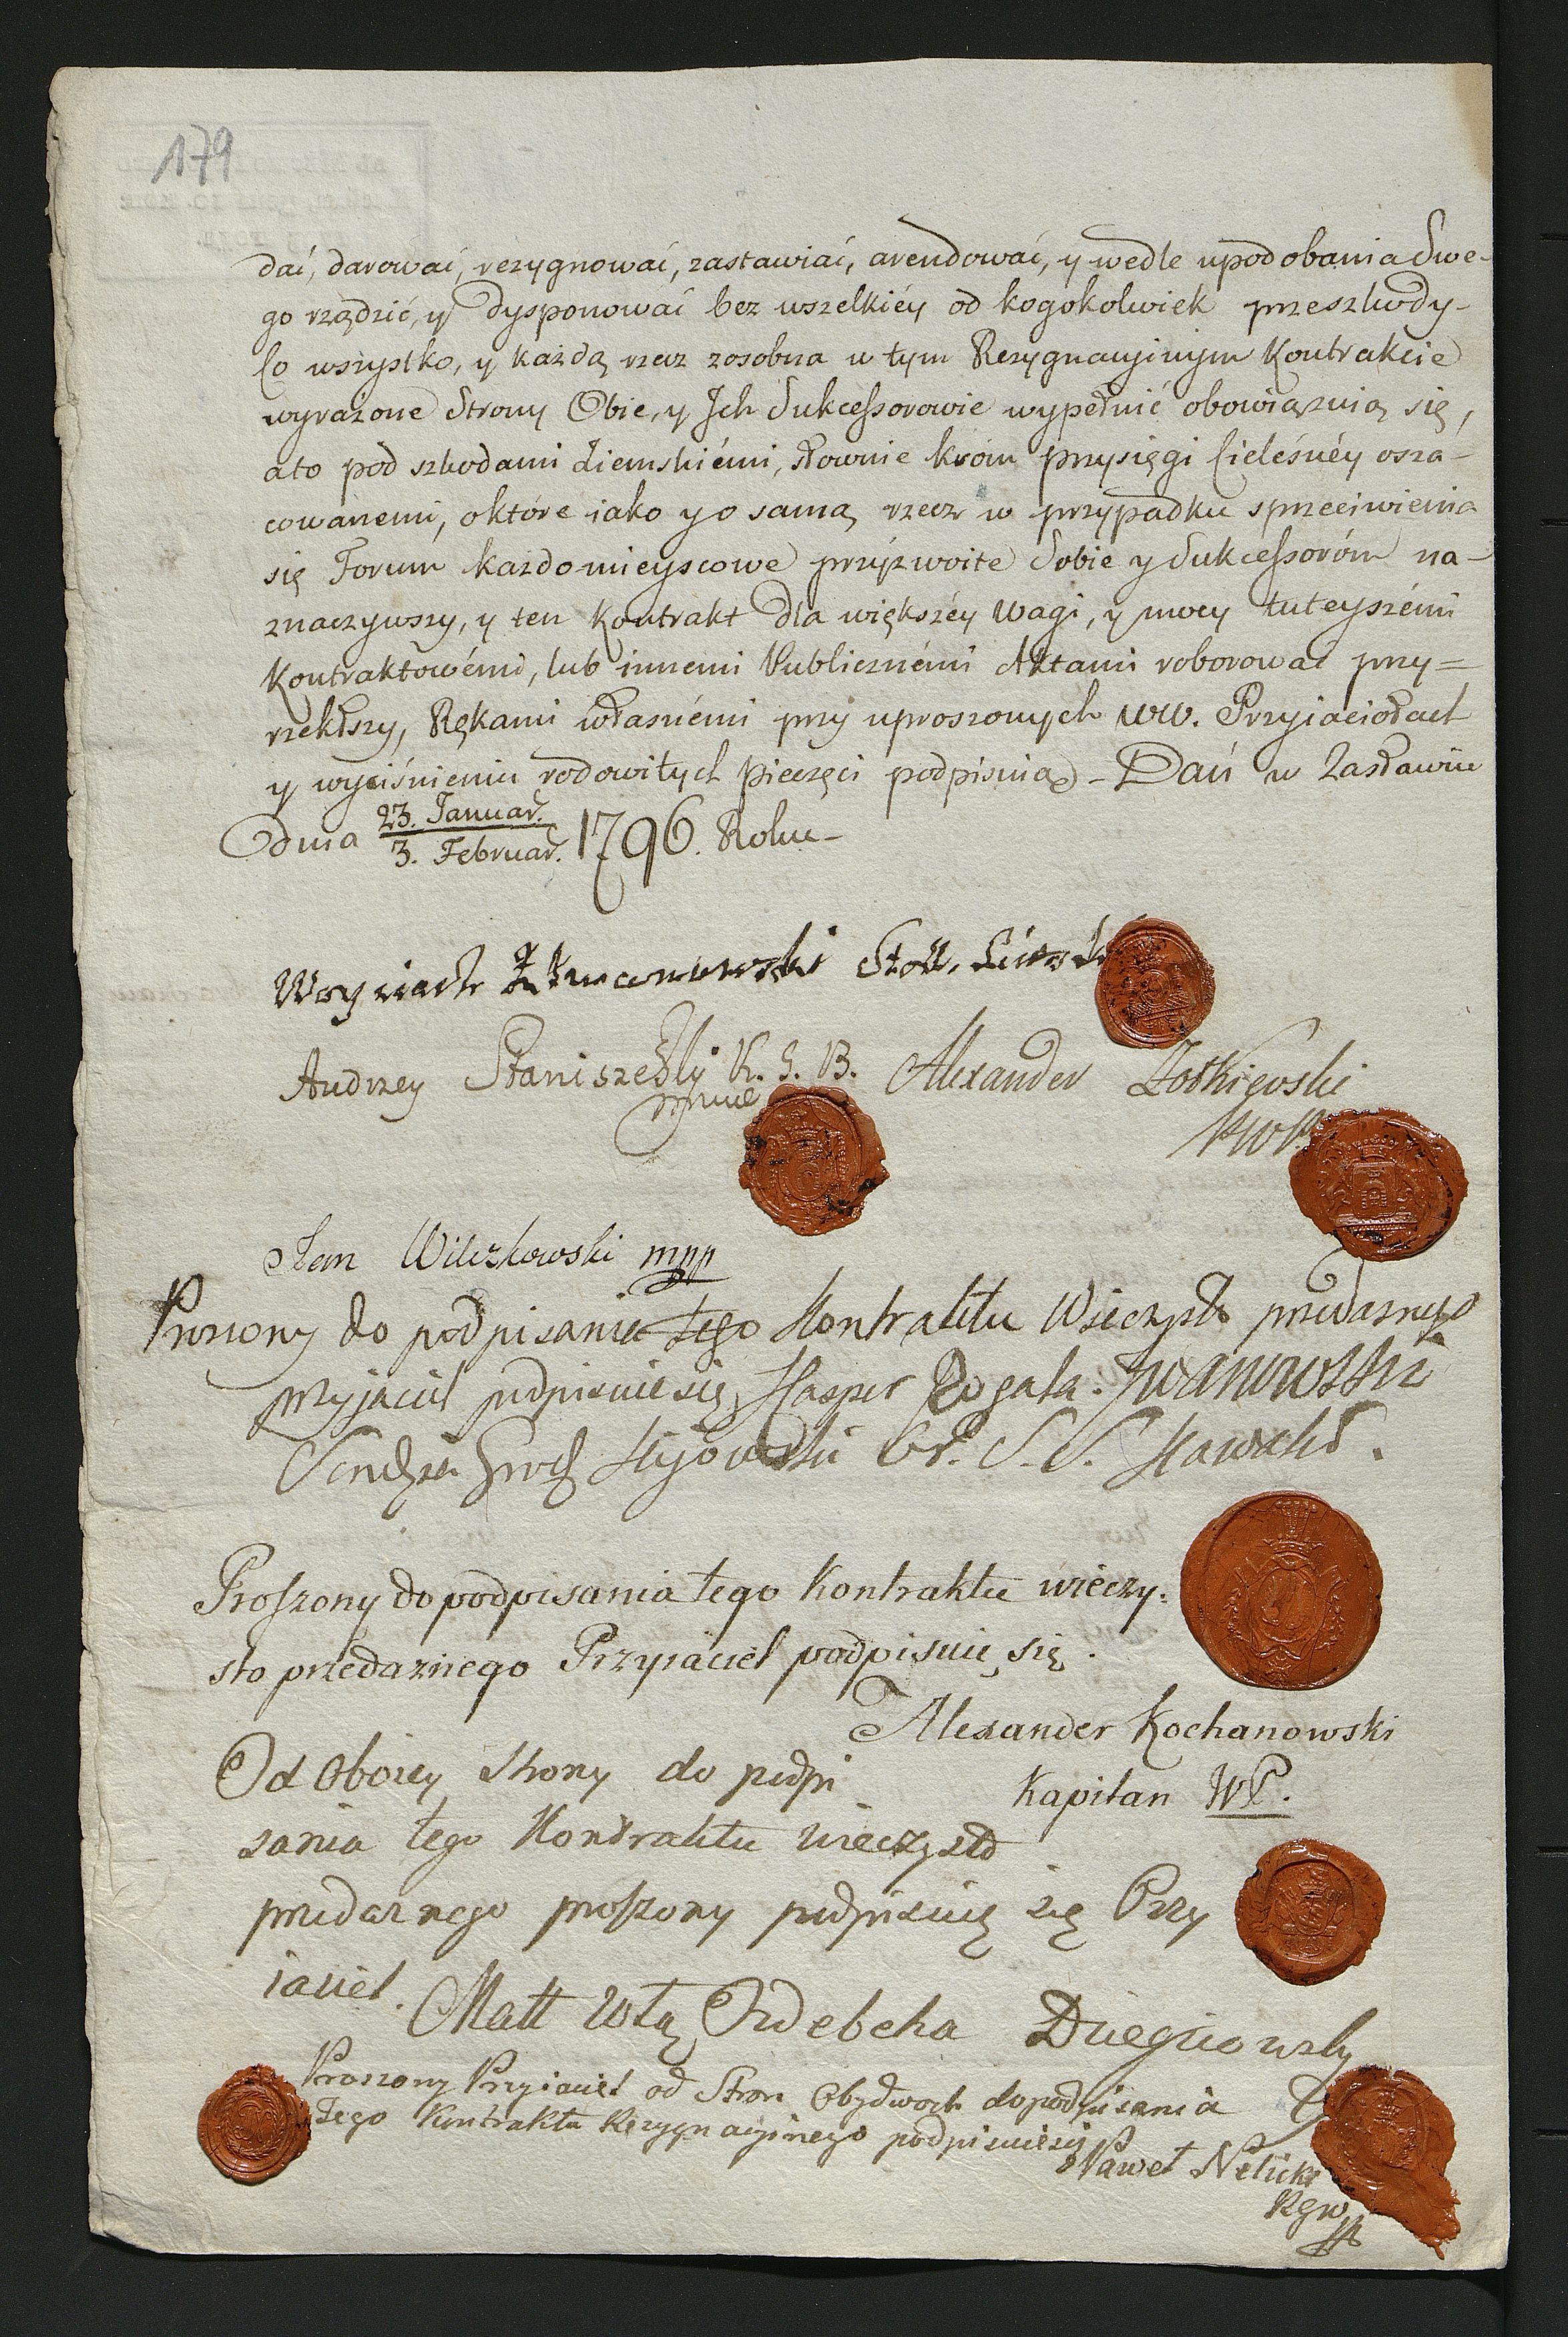 179
dać, darować, rezygnować, zastawiać, arendować, y wedle upodobania Swe-
go rządzić, y dysponować bez wszelkiéy od kogokolwiek przeszkody-
Co wszystko, y każdą rzecz zosobna w tym Rezygnacyinym Kontrakcie
wyrażone Strony Obie, y Ich Sukcessorowie wypełnić obowiązuią się,
a to pod szkodami Ziemskiémi, słownie króm przysięgi Cieleśnéy osza-
cowanemi, o które iako y o samą rzecz w przypadku sprzeciwienia
się Forum każdomieyscowe przyzwoite Sobie y Sukcessoróm na-
znaczywszy, y ten Kontrakt dla większéy wagi, y mocy tuteyszémi
Kontraktowémi, lub innemi Publicznémi Aktami roborować przy=
rzekłszy, Rękami własnémi przy uproszonych WW. Przyiaciołach
y wyciśnieniu rodowitych Pieczęci podpisuią - Dań w Zasławiu
Dnia 23. Januar. / 3. Februar. 1796. Roku-
Woyciech Stoł.
Andrzey Staniszewski K. G. B. Alexander Żołkiewski
mppe
Jan Wilczkowski mpp
Proszony do podpisania tego Kontraktu Wieczysto przedażnego
przyjaciel podpisuie się Kasper Rogala Iwanowski
Sendzia Kijowski Or. S. S. Kawaler.
Proszony do podpisania tego Kontraktu wieczy:
sto przedażnego Przyiaciel podpisuię się.
Alexander Kochanowski
Kapitan WP.
Od Oboiey Strony do podpi
sania tego Kontraktu wieczysto
przedażnego proszony podpisuię się Przy
iaciel.
Matt
Proszony Przyiaciel od Stron Obydwoch do podpisania
tego Kontraktu Rezygnacyinego podpisuie się
Paweł